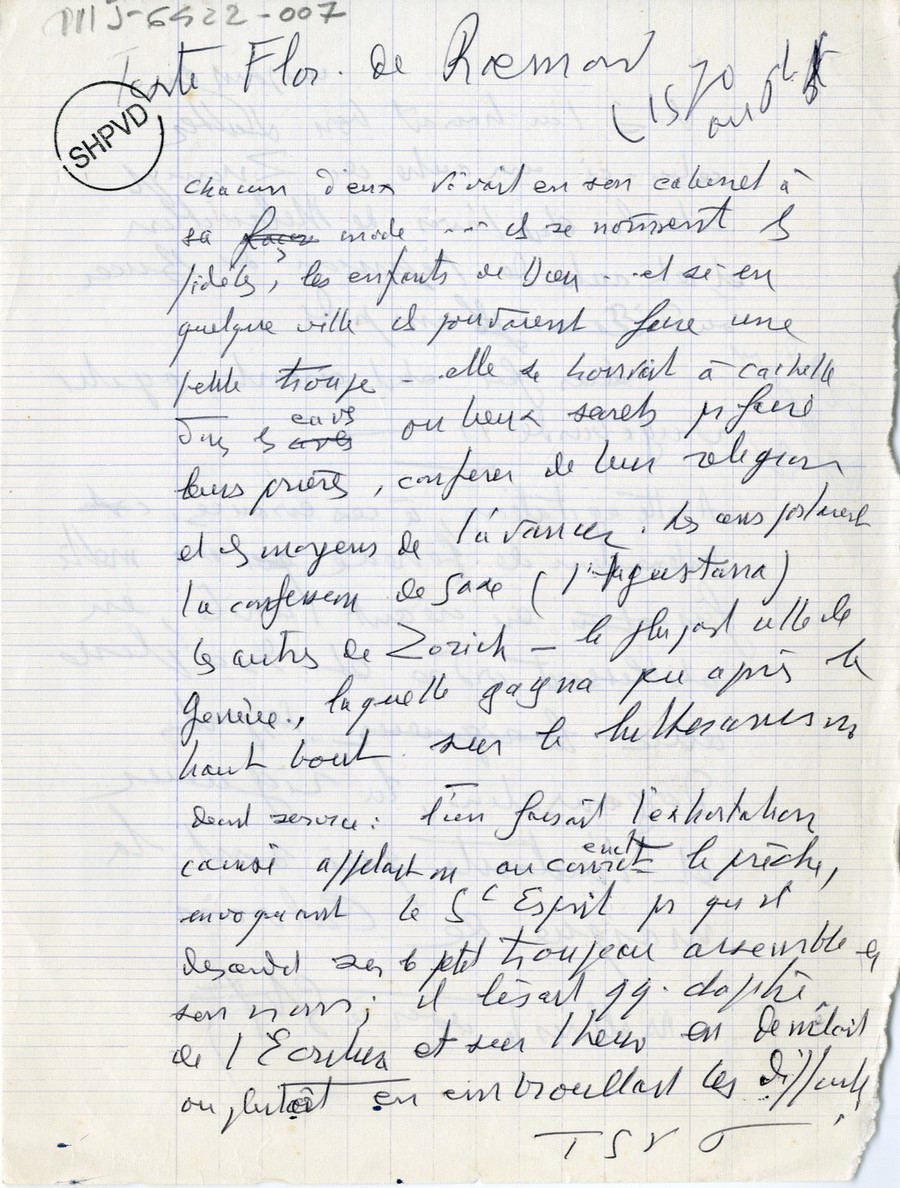 III J-6422-007
Texte Flor. de Raemond
(1570
ou plt
SHPVD
chacun d'eux vivait en son cabinet à
sa façon mode ... ils se nommaient ls
fidèles, les enfants de Dieu .. et si en
quelque ville ils pouvaient faire une
petite troupe - elle se trouvait à cachette
dans ls caves ou lieux secrets pr faire
leurs prières, conférer de leur religion
et ls moyens de l'avancer. Les uns
la confession de Saxe (l'Augustana)
ls autres de Zurich - la plupart celle de
Genève, laquelle gagna peu après le
haut bout sur le luthéranisme
dans service : l'un faisait l'exhortation
ainsi appelait on au le prêche,
invoquant le St Esprit pr qu'il
descendit sur le petit troupeau assemblé en
son nom ; il lisait qq. chapitre
de l'Ecriture et sur l'heure en
ou plutôt en embrouillait les difficultés
TSVP